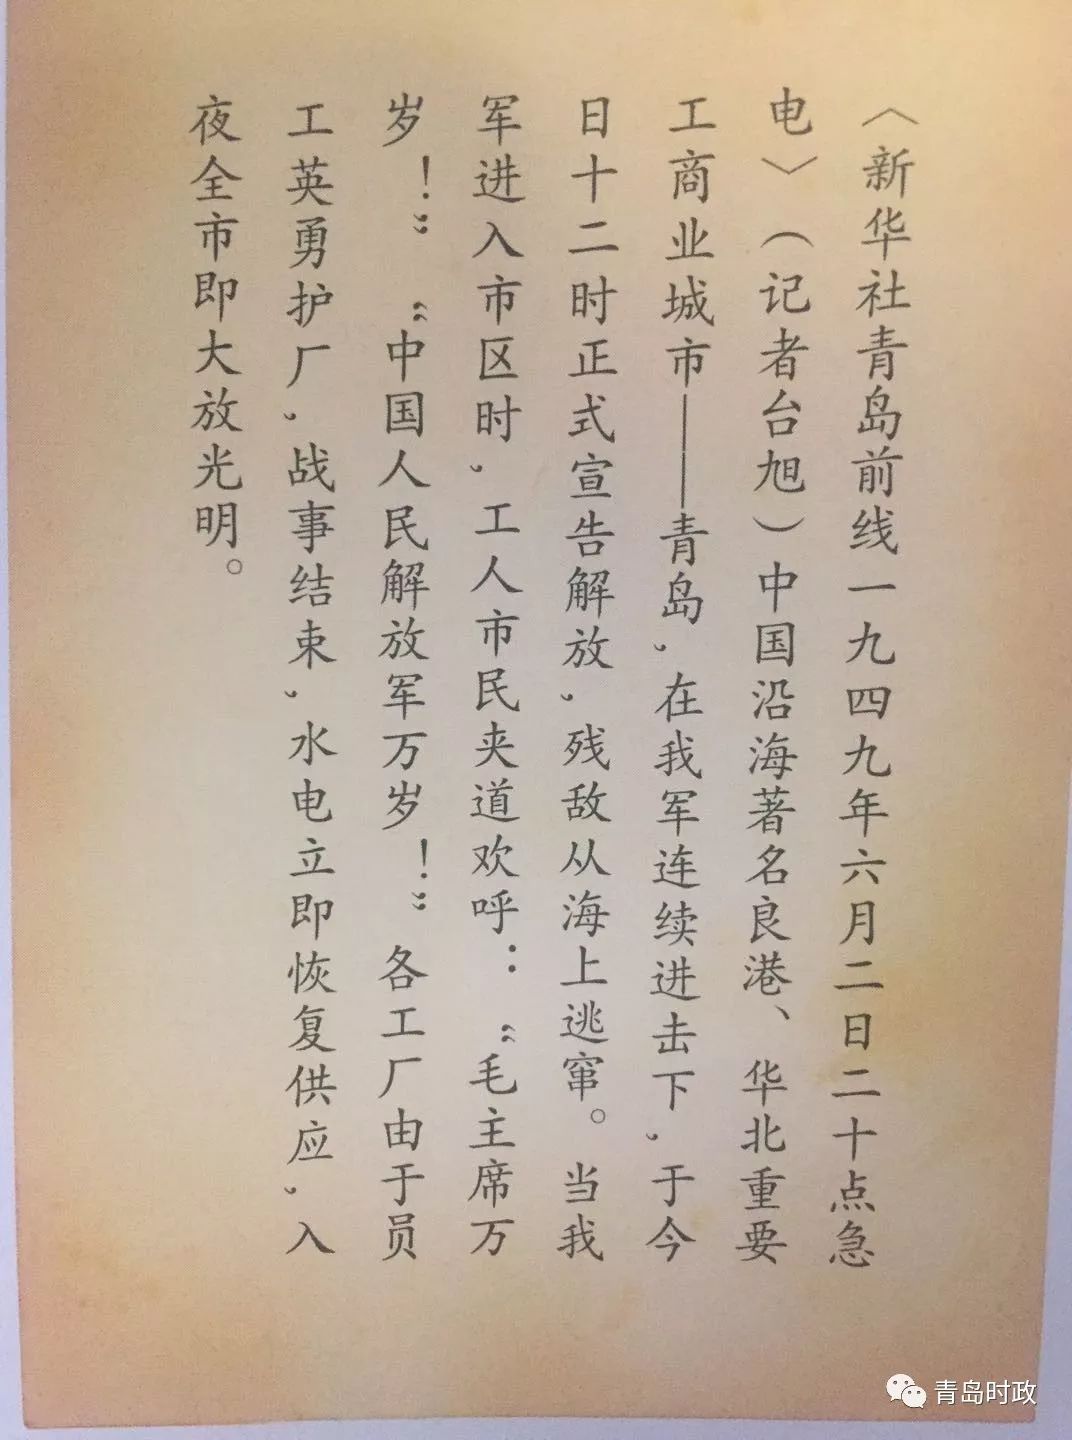 〈新华社青岛前线一九四九年六月二日二十点急
电〉（记者台旭）中国沿海著名良港、华北重要
工商业城市——青岛，在我军连续进击下，于今
日十二时正式宣告解放，残敌从海上逃窜。当我
军进入市区时，工人市民夹道欢呼：“毛主席万
岁！”“中国人民解放军万岁！”各工厂由于员
工英勇护厂，战事结束，水电立即恢复供应，入
夜全市即大放光明。
青岛时政